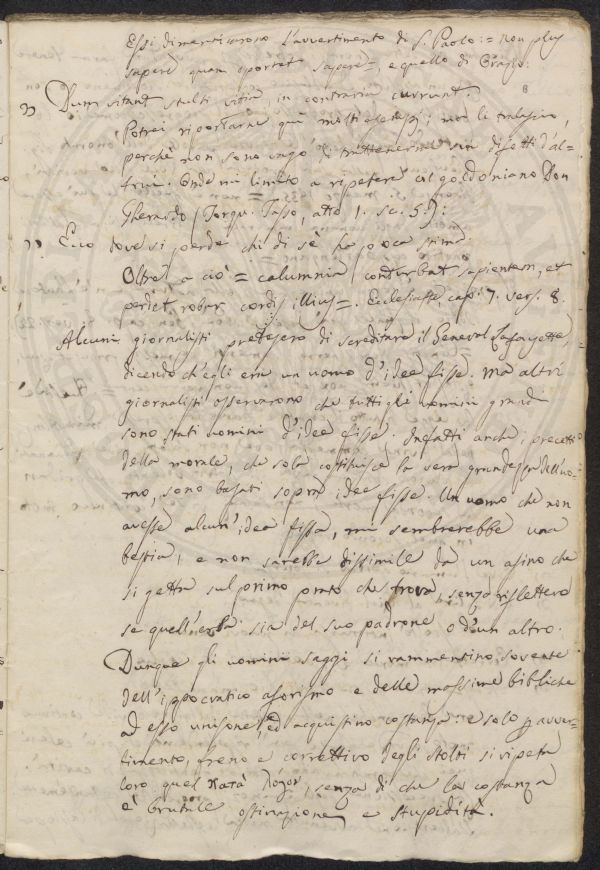 Essi dimenticarono l'avvertimento di S. Paolo: = Non plus
sapere quam oportet sapere =, e quello di Orazio:
" Dum vitant stulti vitia, in contraria currunt.
Potrei riportarne quì molti esempj; ma li tralascio,
perchè non sono vago di trattenermi sui difetti d'al=
trui. Onde mi limito a ripetere col goldoniano Don
Gherardo (Torqu. Tasso, atto 1. sc. 5.):
" Ecco dove si perde chi di sè ha poca stima.
Oltre a ciò = calumnia conturbat sapientem, et
perdet robur cordis illius =. Ecclesiaste, cap. 7. vers. 8.
Alcuni giornalisti pretesero di screditare il General Lafayette,
dicendo ch'egli era un uomo d'idee fisse. Ma altri
giornalisti osservarono che tutti gli uomini grandi
sono stati uomini d'idee fisse. Infatti anche i precetti
della morale, che sola costituisce la vera grandezza dell'uo=
mo, sono basati sopra idee fisse. Un uomo che non
avesse alcun'idea fissa, mi sembrerebbe una
bestia, e non sarebbe dissimile da un asino che
si getta sul primo prato che trova, senza riflettere
se quell'erba sia del suo padrone o d'un altro.
Dunque gli uomini saggi si rammentino sovente
dell'ippocratico aforismo e delle massime bibliche
ad esso unisone, ed acquistino costanza: e solo p avver=
timento, freno e correttivo degli stolti si ripeta
loro quel Κατὰ λόγον, senza di che la costanza
è brutale ostinazione e stupidità.